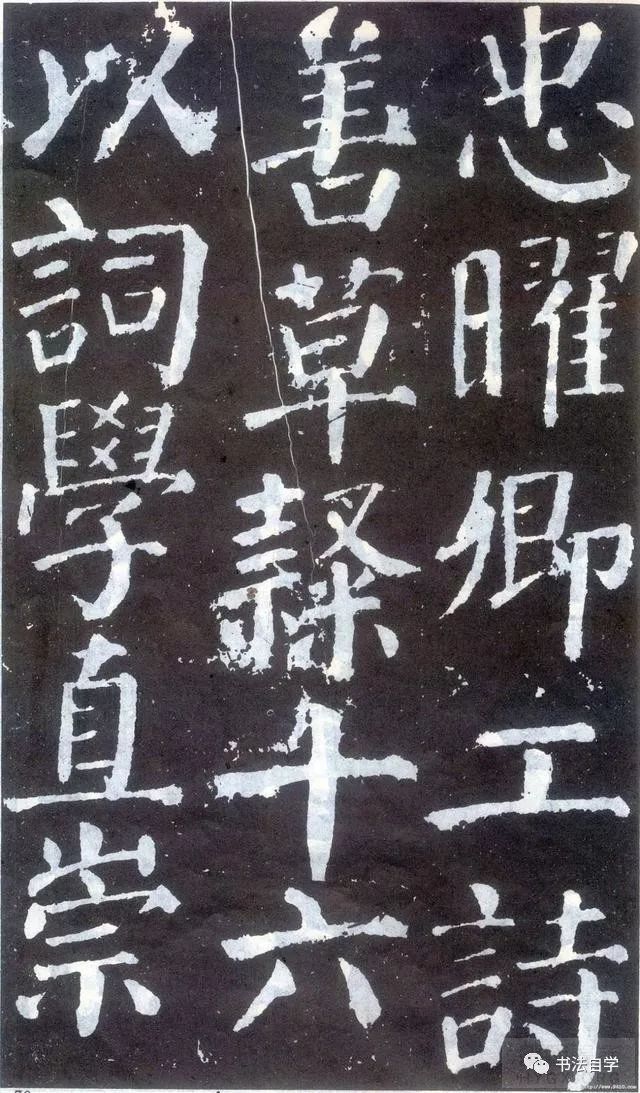 忠曜卿工詩
善草隸十六
以詞學直崇
书法自学
http://www.9610.com